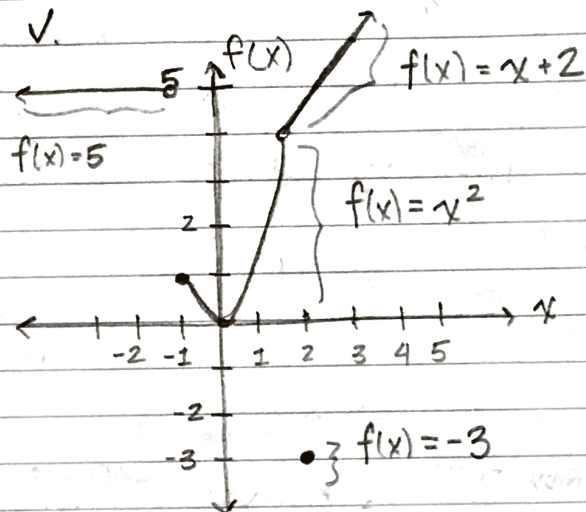 V.
f(x)
5
f(x) = x + 2
f(x) = 5
f(x) = x²
2
x
-2 -1 1 2 3 4 5
-2
-3
f(x) = -3